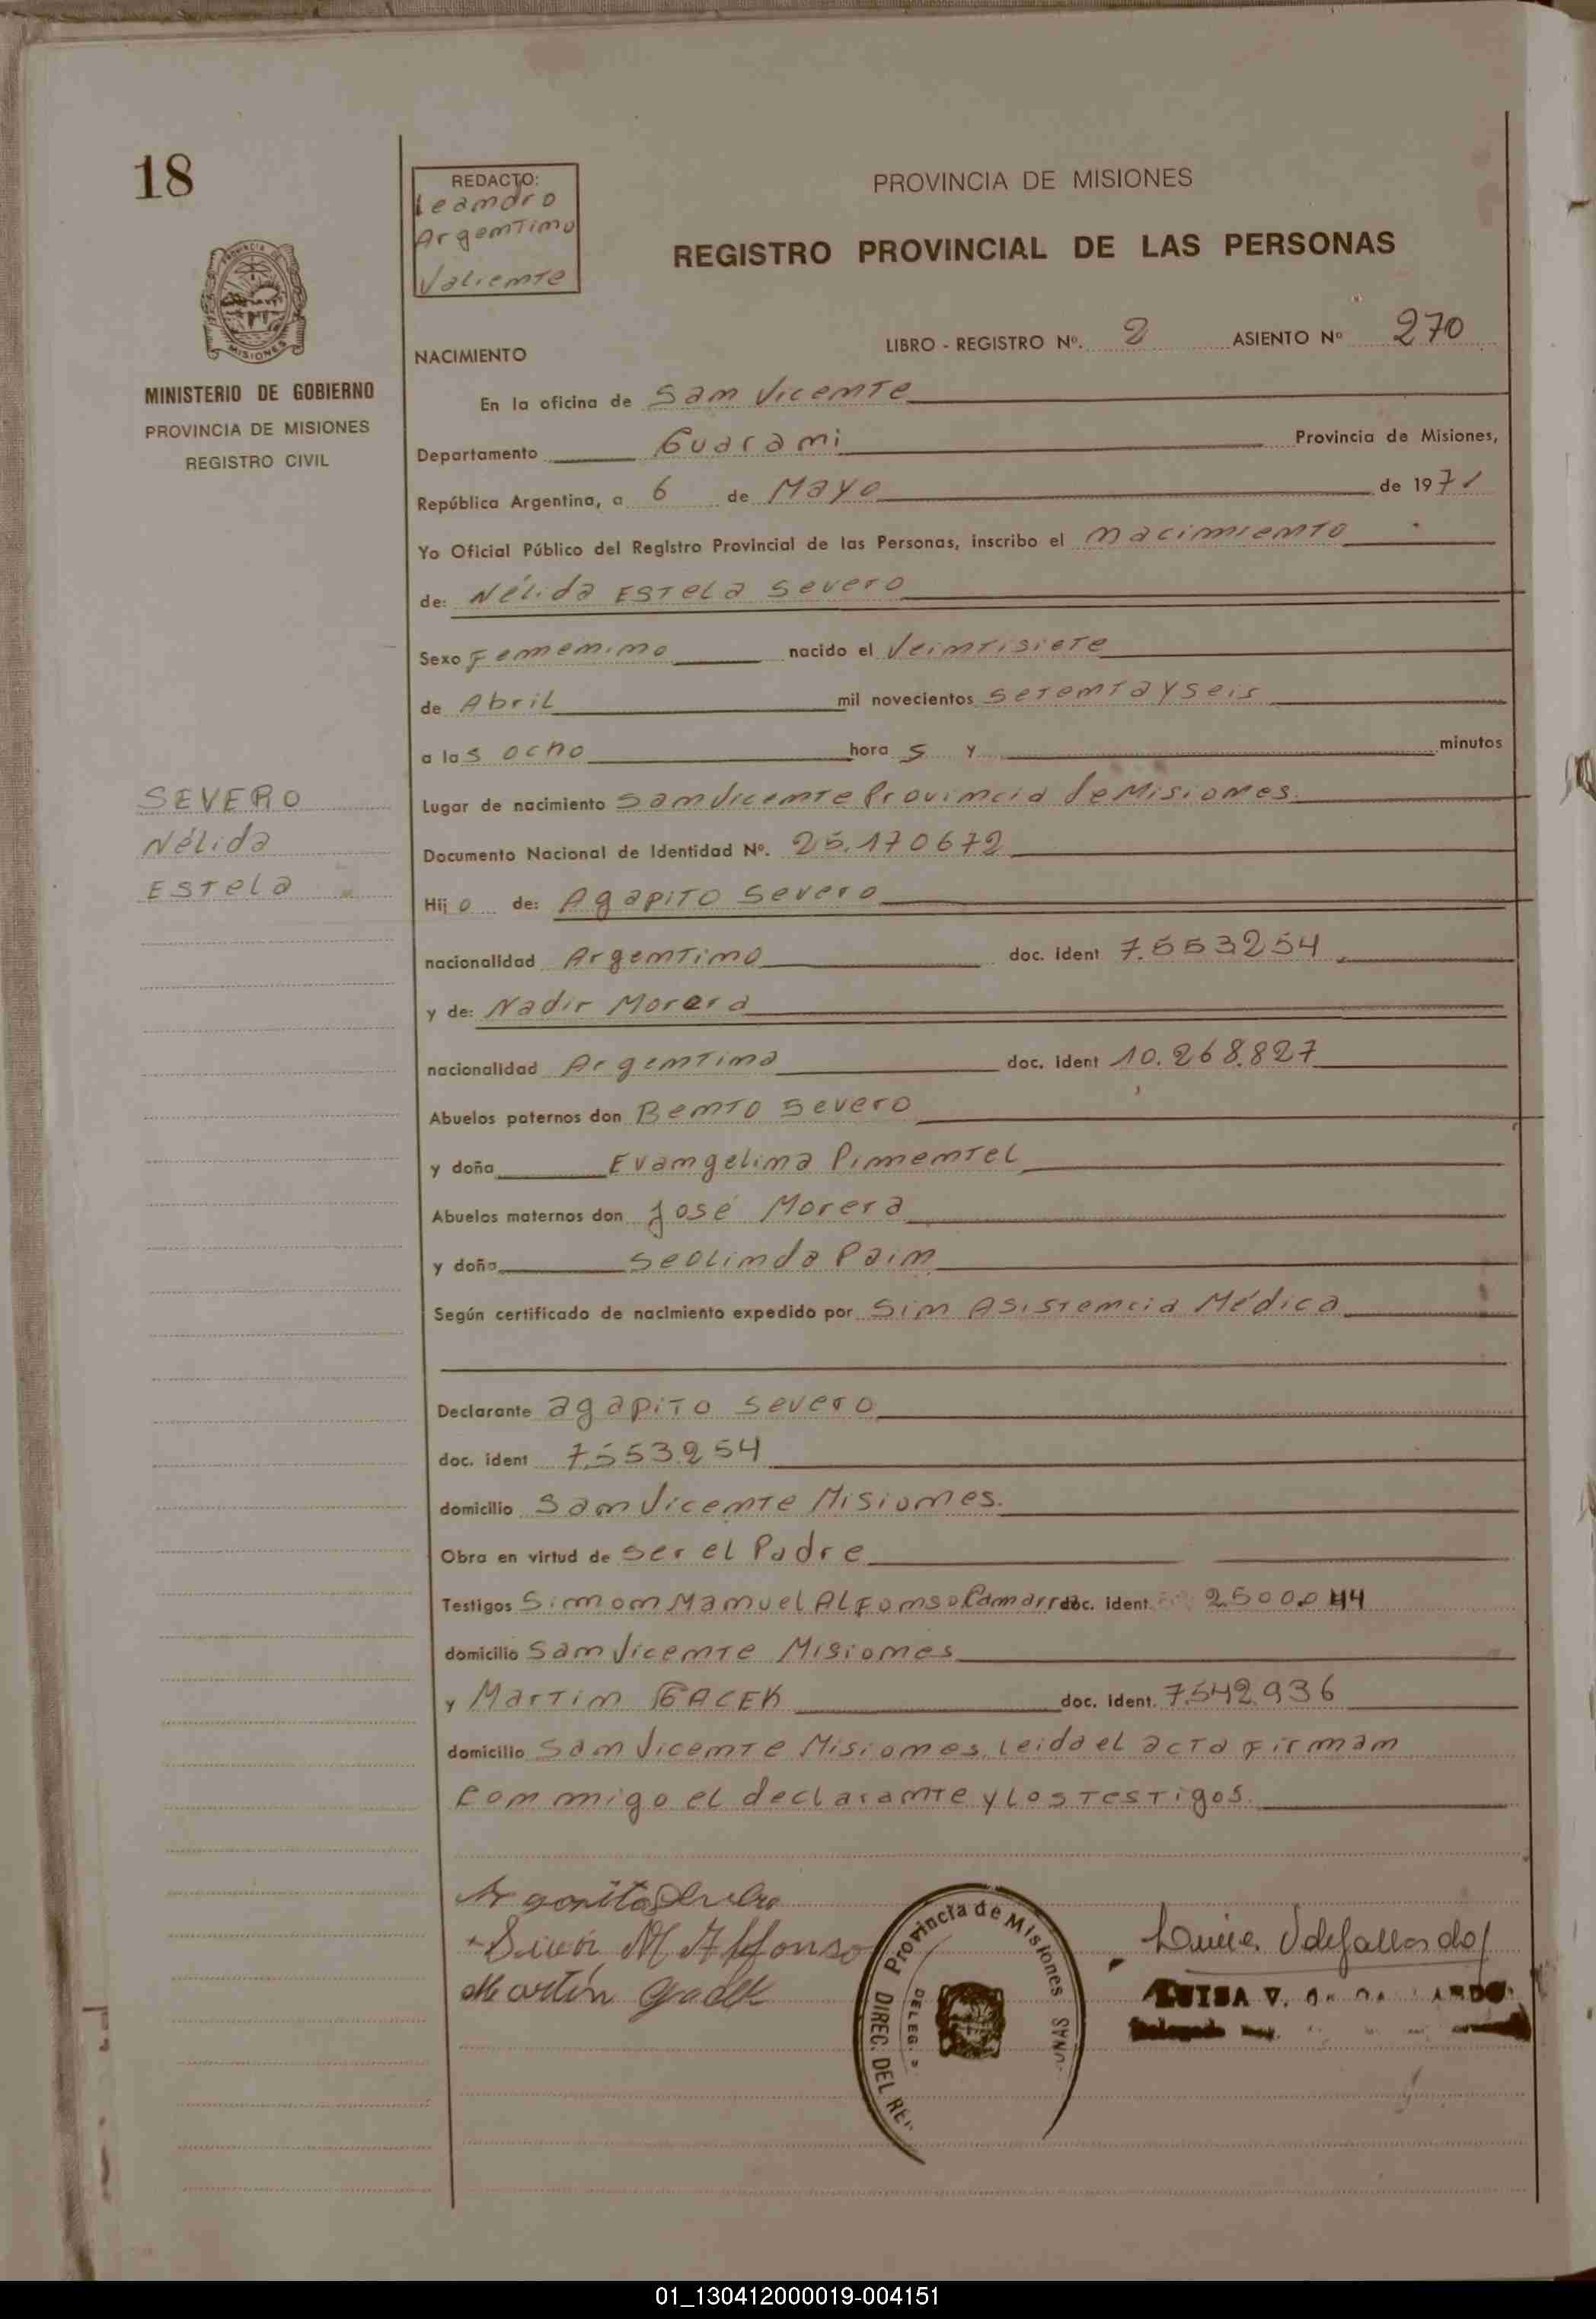 18
REDACTO:
Leandro
Argentino
Valiente
PROVINCIA DE MISIONES
REGISTRO PROVINCIAL DE LAS PERSONAS
MISIONES
MINISTERIO DE GOBIERNO
PROVINCIA DE MISIONES
REGISTRO CIVIL
NACIMIENTO
LIBRO - REGISTRO Nº. 2 ASIENTO Nº 270
En la oficina de San Vicente
Departamento Guaraní Provincia de Misiones,
República Argentina, a 6 de Mayo de 1971
Yo Oficial Público del Registro Provincial de las Personas, inscribo el nacimiento
de: Nélida Estela Severo
Sexo Femenino nacido el Veintisiete
de Abril mil novecientos setentayseis
a las ocho horas y minutos
SEVERO
Nélida
Estela
Lugar de nacimiento San Vicente Provincia de Misiones.
Documento Nacional de Identidad Nº. 25.170672
Hijo de: Agapito Severo
nacionalidad Argentino doc. ident 7.553254
y de: Nadir Morera
nacionalidad Argentina doc. ident 10.268.827
Abuelos paternos don Bento Severo
y doña Evangelina Pimentel
Abuelos maternos don José Morera
y doña Seolinda Paim
Según certificado de nacimiento expedido por Sin Asistencia Médica
Declarante agapito Severo
doc. ident 7.553.254
domicilio San Vicente Misiones.
Obra en virtud de ser el Padre
Testigos Simon Manuel Alfonso doc. ident.
domicilio San Vicente Misiones
y Martin GACEK doc. ident. 7.542.936
domicilio San Vicente Misiones, leida el acta firman
conmigo el declarante y los testigos.
Agapito Severo
Simón M Alfonso
Martín Gacek
Provincia de Misiones
DIREC. DEL
DELEG.
LUISA V.
01_130412000019-004151